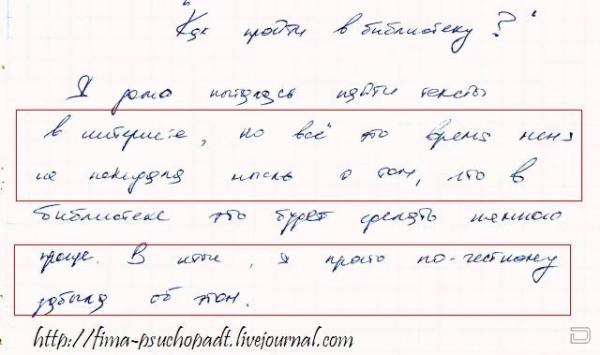 "Как пройти в библиотеку?"
Я дома пыталась найти тексты
в интернете, но всё это время меня
не покидала мысль о том, что в
библиотеке это будет сделать немного
проще. В итоге, я просто по-честному
забыла об этом.
http://fima-psychopadt.livejournal.com